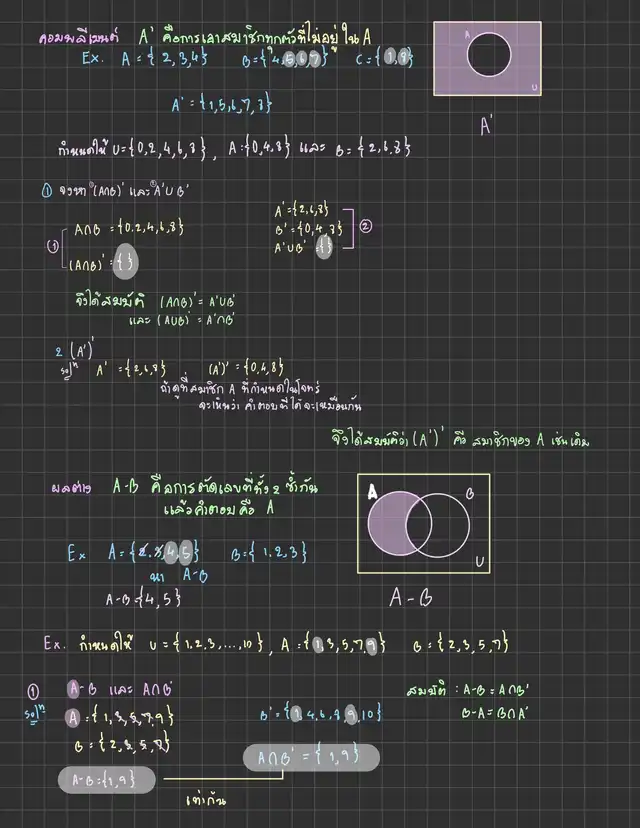 คอมพลีเมนต์ A' คือการเอาสมาชิกทุกตัวที่ไม่อยู่ใน A
Ex. A = { 2, 3, 4 } B = { 4, 5, 6, 7 } C = { 1, 8 }
A' = { 1, 5, 6, 7, 8 }
A
U
A'
กำหนดให้ U = { 0, 2, 4, 6, 8 } , A = { 0, 4, 8 } และ B = { 2, 6, 8 }
① จงหา ①(A∩B)' และ ②A'∪B'
A∩B = { 0, 2, 4, 6, 8 }
① (A∩B)' = { }
A' = { 2, 6, 8 }
B' = { 0, 4, 8 }
A'∪B' = { } ②
จึงได้สมบัติ (A∩B)' = A'∪B'
และ (A∪B)' = A'∩B'
2 (A')'
solⁿ A' = { 2, 6, 8 } (A')' = { 0, 4, 8 }
ถ้าดูที่สมาชิก A ที่กำหนดในโจทย์
จะเห็นว่า คำตอบที่ได้จะเหมือนกัน
จึงได้สมบัติว่า (A')' คือ สมาชิกของ A เช่นเดิม
ผลต่าง A-B คือการตัดเลขที่ทั้ง 2 ซ้ำกัน
แล้วคำตอบคือ A
A
B
U
A - B
Ex A = { 2, 3, 4, 5 } B = { 1, 2, 3 }
หา A-B
A-B = { 4, 5 }
Ex. กำหนดให้ U = { 1, 2, 3, ..., 10 } , A = { 1, 3, 5, 7, 9 } B = { 2, 3, 5, 7 }
① A-B และ A∩B'
solⁿ A = { 1, 3, 5, 7, 9 }
B = { 2, 3, 5, 7 }
A-B = { 1, 9 }
B' = { 1, 4, 6, 8, 9, 10 }
A∩B' = { 1, 9 }
เท่ากัน
สมบัติ : A-B = A∩B'
B-A = B∩A'